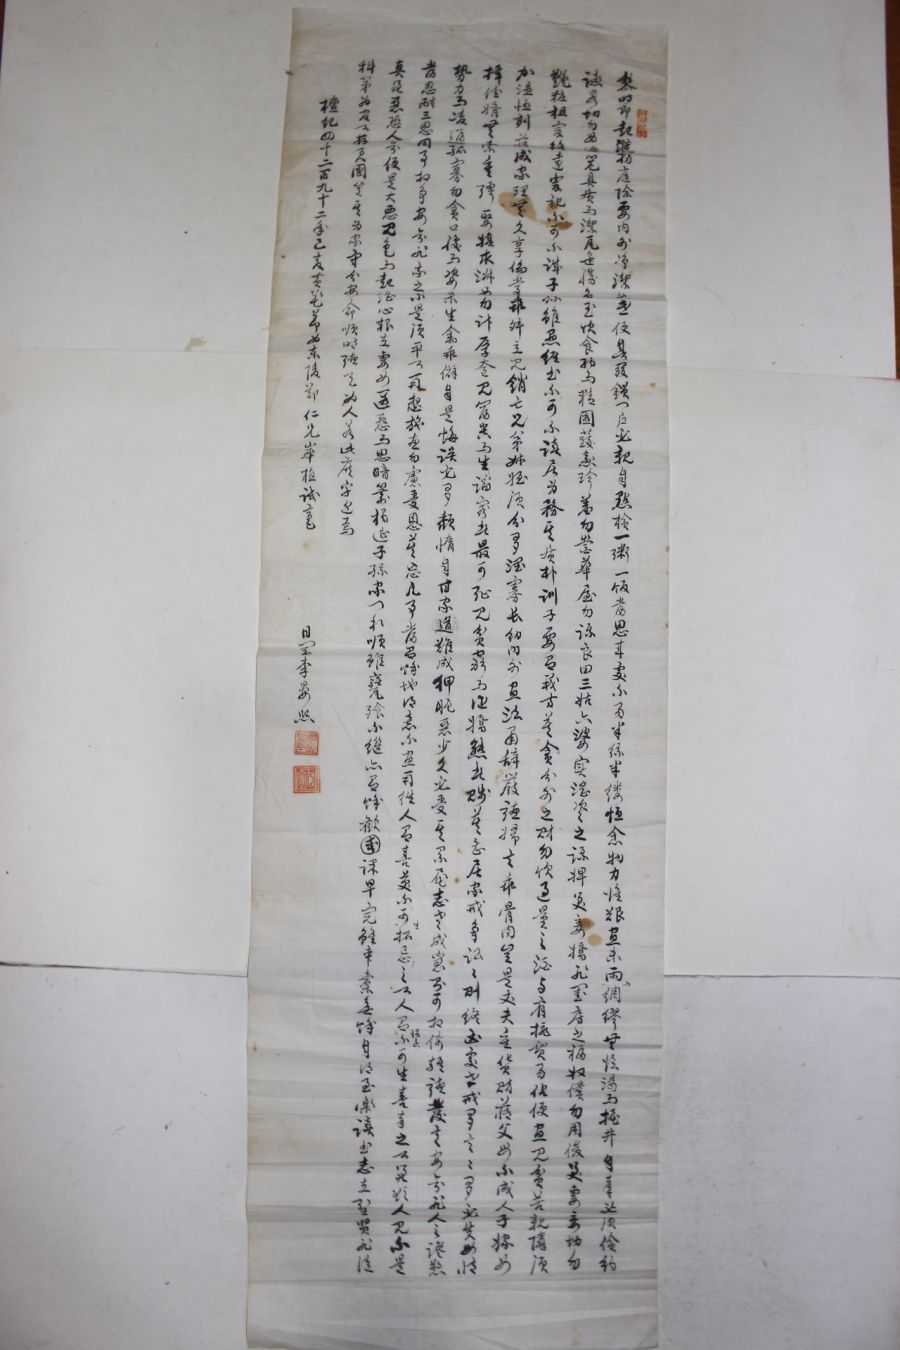 黎明即起灑掃庭除要內外淨潔昏便息鎖門戶必親自點檢一粥一飯當思來處不易半絲半縷恒念物力惟艱宜未雨綢繆毋臨渴而掘井自奉必須儉約
切勿器具質而潔瓦缶勝金玉飲食約而精園蔬愈珍羞勿營華屋勿謀良田三姑六婆實淫盜之媒婢美妾嬌非閨房之福奴僕勿用俊美妻妾切勿
艷粧祖宗雖遠祭祀不可不誠子孫雖愚經書不可不讀居身務其質朴訓子要有義方莫貪分外之財勿飲過量之酒與肩挑貿易毋佔便宜見貧苦親隣須
加溫恤刻薄成家理無久享倫常乖舛立見銷亡兄弟姊姪須分多潤寡長幼內外宜法肅辭嚴聽婦言乖骨肉豈是丈夫重貨財薄父母不成人子嫁女
擇佳婿無索重聘娶媳求淑女勿計厚奩見富貴而生諂容者最可恥見貧窮而作驕態者賤莫甚居家戒爭訟訟則終凶處世戒多言言多必失毋恃
勢力而凌逼孤寡勿貪口腹而恣殺生禽乖僻自是悔誤必多頹惰自甘家道難成狎昵惡少久必受其累屈志老成急則可相倚輕聽發言安知非人之譖愬
當忍耐三思因事相爭安知非我之不是須平心再想施惠勿慮受恩莫忘凡事當留餘地得意不宜再往人有喜慶不可生妬忌之心人有禍患不可生喜幸之心善欲人見不是
真善惡恐人知便是大惡見色而起淫心報在妻女匿怨而用暗箭禍延子孫家門和順雖饔飧不繼亦有餘歡國課早完雖囊橐無餘自得至樂讀書志在聖賢非徒
科第為官心存君國豈計為家守分安命順時聽天為人若此庶乎近焉
檀紀四千二百九十二年己亥黃花節為東陵鄭仁兄